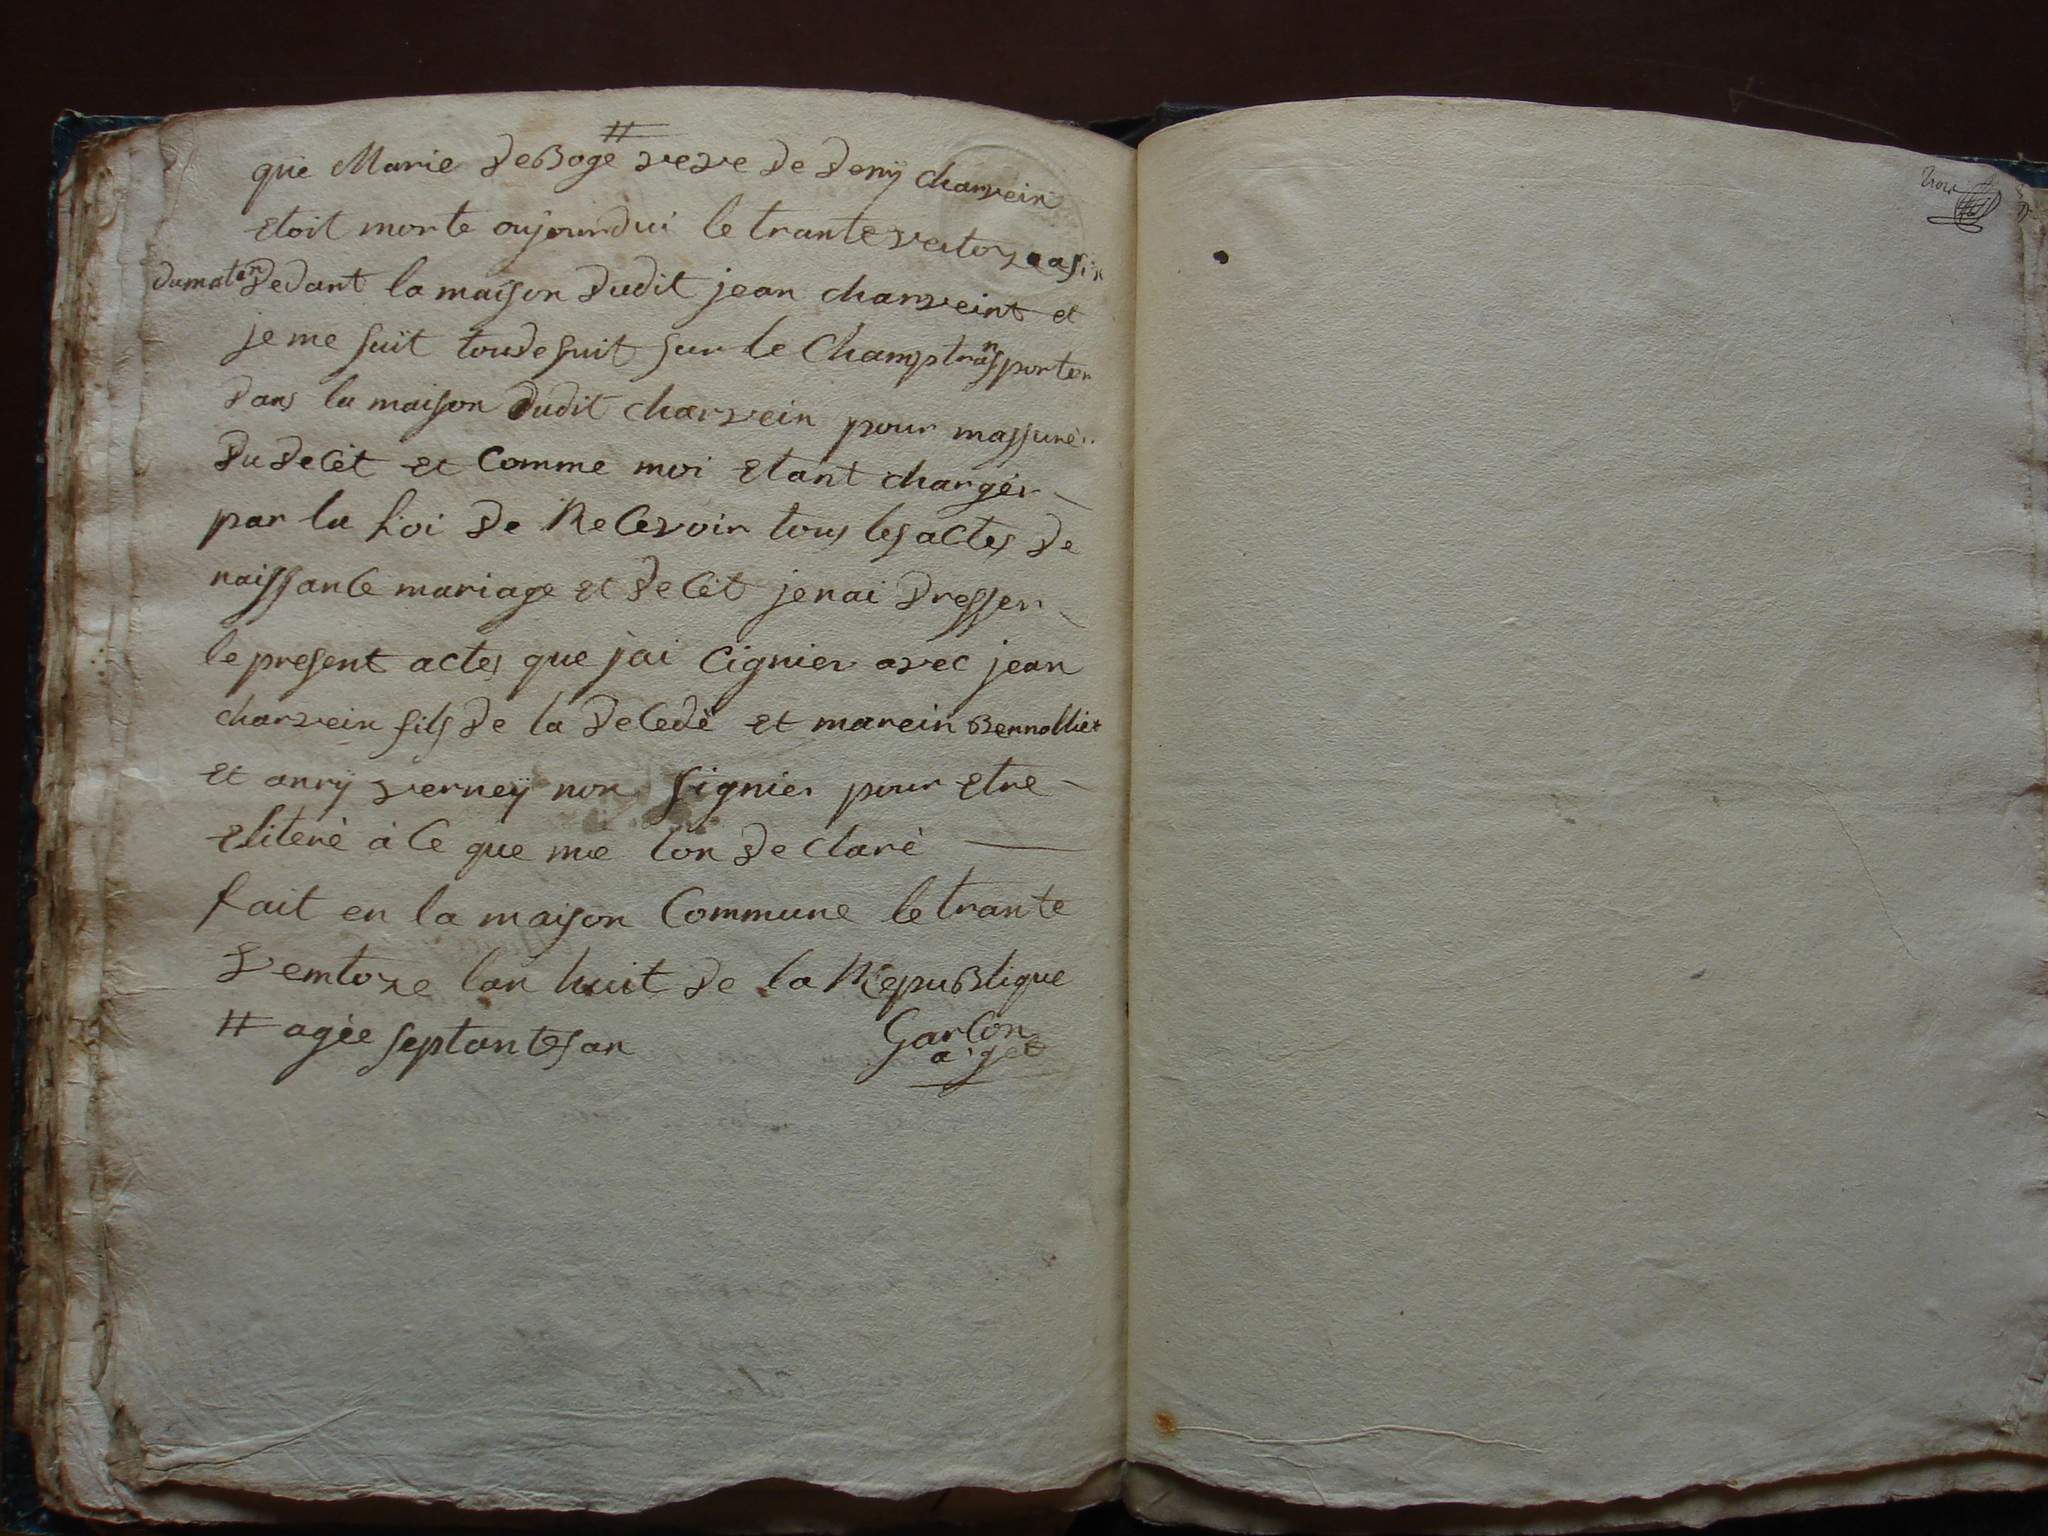 #
que Marie deBoge veve de deny charvein
etoit morte oujourdui le trante vator a a six
dumaten dedant la maison dudit jean charveint et
je me suit toudesuit sur le Champ transporter
dans la maison dudit charvein pour massuré
du decét et Comme moi etant chargér
par la Loi de Recevoir tous les actes de
naissance mariage et decét jenai dresser
le present actes que jai Cignier avec jean
charvein fils de la decedé et marein
et anry verney non signier pour etre
eliteré à Ce que me lon declaré
fait en la maison Commune le trante
ventoze lan huit de la RepuBlique
# agée septantesan
GarCon
a. get